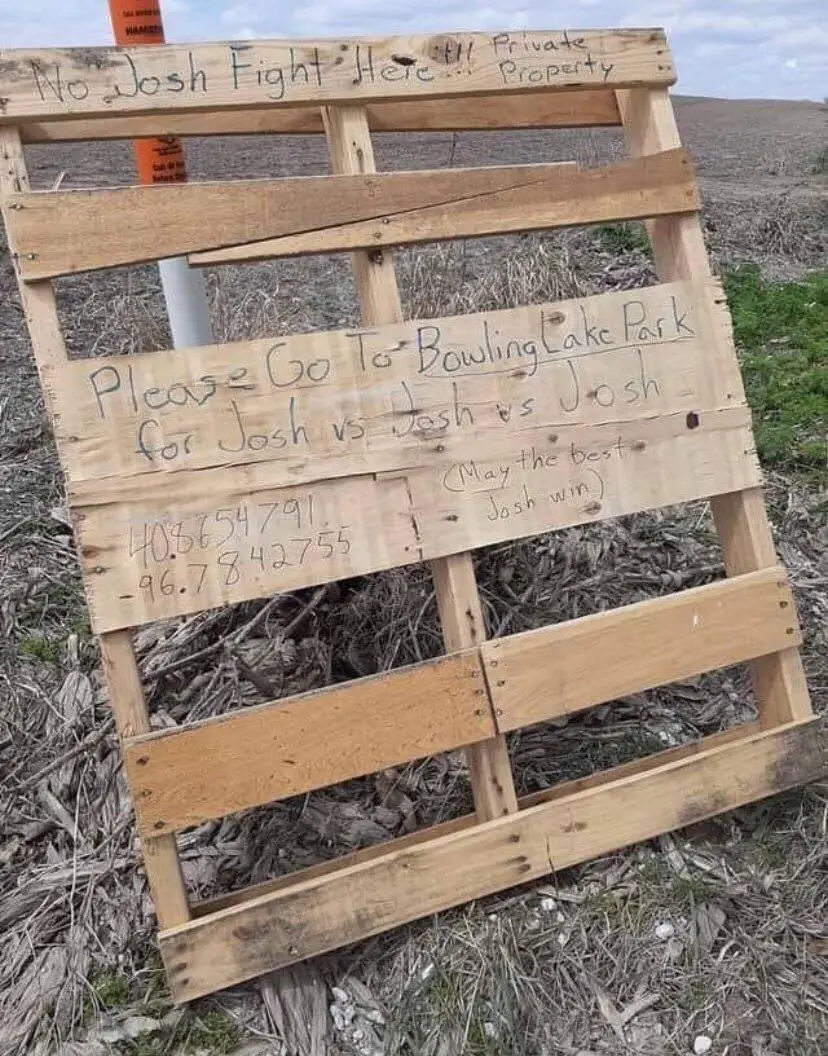 No Josh Fight Here!!! Private
Property
Please Go To Bowling Lake Park
for Josh vs Josh vs Josh
(May the best
Josh win)
40.8654791.
-96.7842755